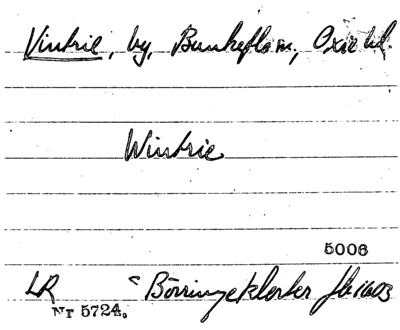 Vintrie, by, Bunkeflom, Oxie hd.
Wintrie
5006
LR Börringekloster Jb 1603
Nr 5724.